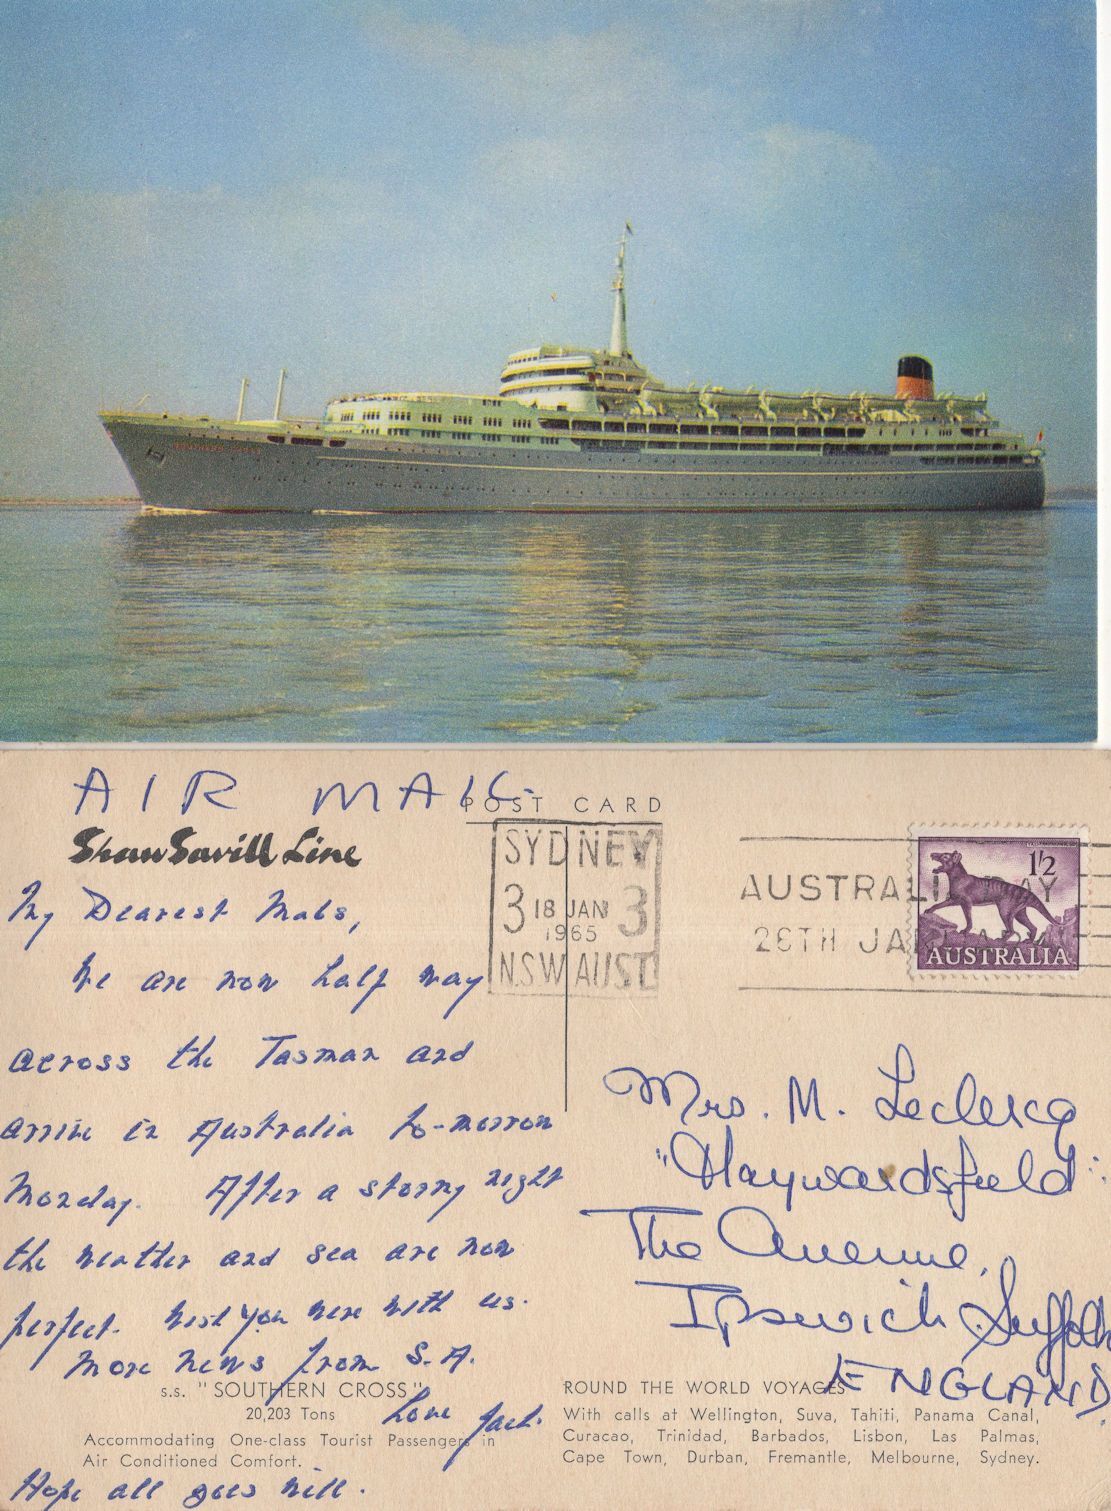 SOUTHERN CROSS
AIR MAIL
POST CARD
Shaw Savill Line
SYDNEY
3 18 JAN 3
1965
N.S.W AUST
AUSTRALIA DAY
26TH JANUARY
1'2
AUSTRALIA
My Dearest Mabs,
We are now half way
across the Tasman and
arrive in Australia to-morrow
Monday. After a stormy night
the weather and sea are now
perfect. Wish you were with us.
More news from S.A.
Love Jack.
Hope all goes well.
Mrs. M. Leclercq
"Haywardsfield"
The Avenue,
Ipswich Suffolk
ENGLAND
s.s. "SOUTHERN CROSS"
20,203 Tons
Accommodating One-class Tourist Passengers in
Air Conditioned Comfort.
ROUND THE WORLD VOYAGES
With calls at Wellington, Suva, Tahiti, Panama Canal,
Curacao, Trinidad, Barbados, Lisbon, Las Palmas,
Cape Town, Durban, Fremantle, Melbourne, Sydney.